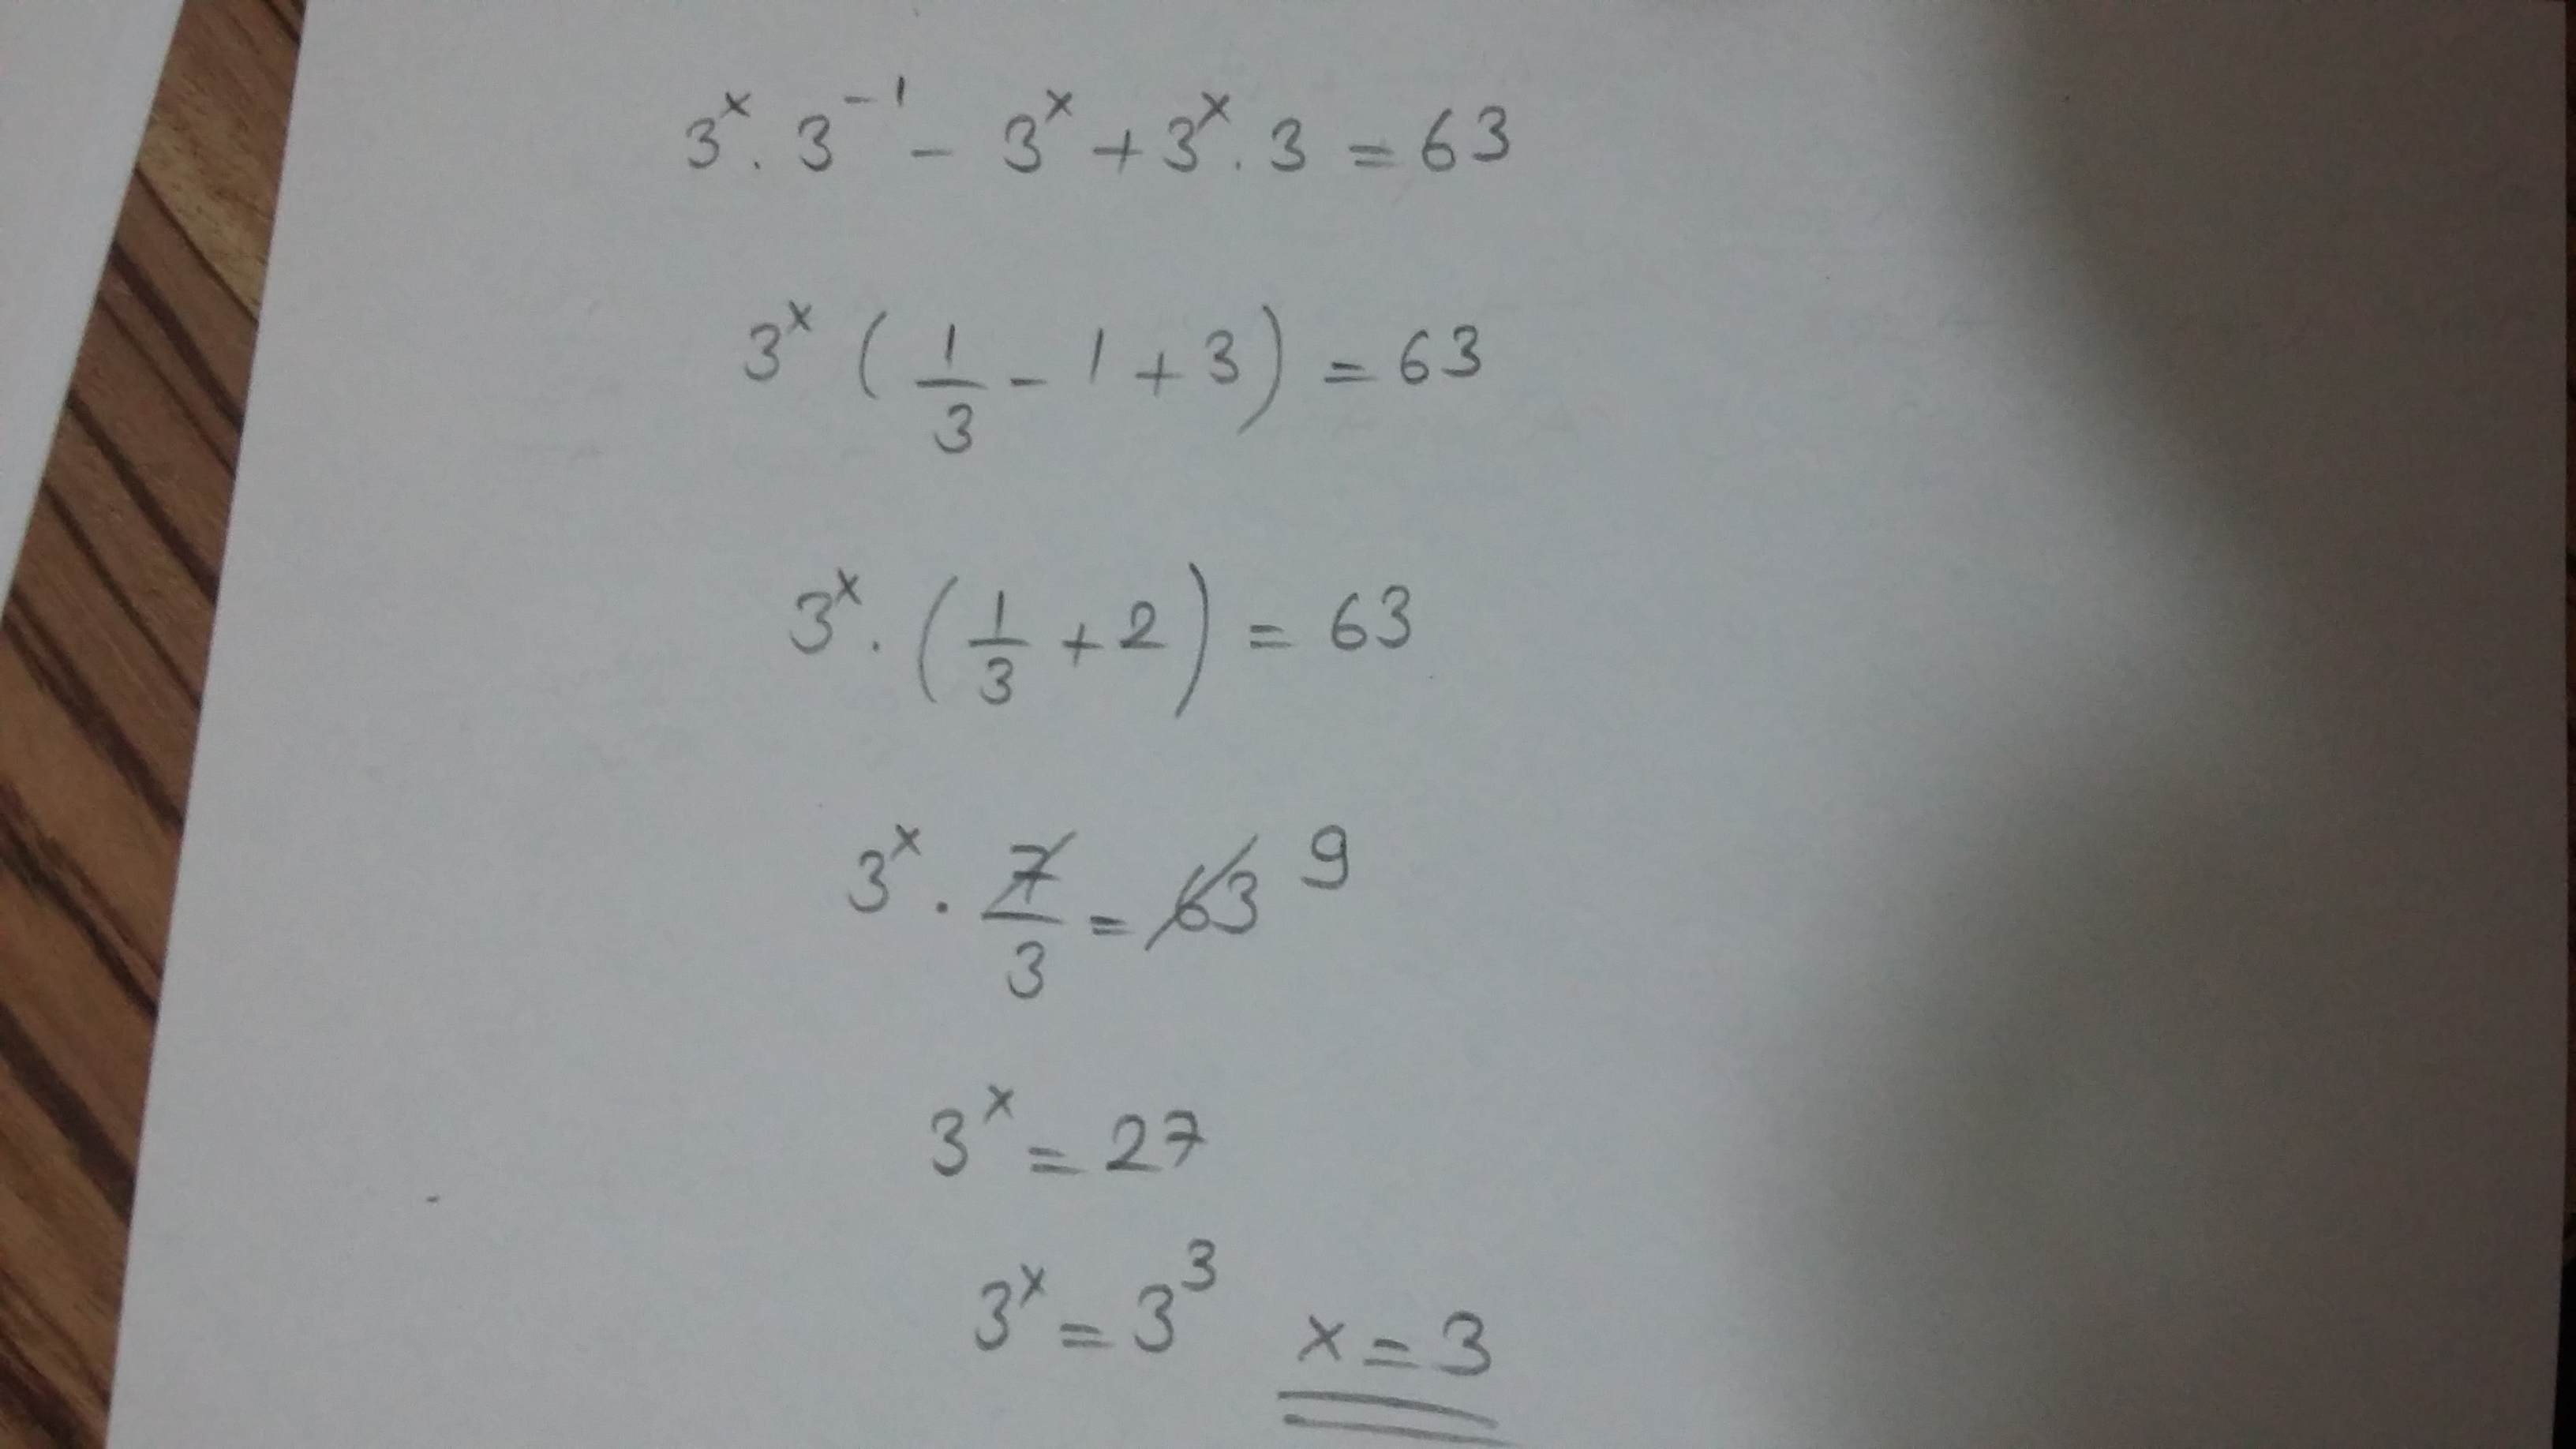 3^x . 3^-1 - 3^x + 3^x . 3 = 63
3^x ( 1/3 - 1 + 3 ) = 63
3^x . ( 1/3 + 2 ) = 63
3^x . 7/3 = 63 9
3^x = 27
3^x = 3^3 x = 3